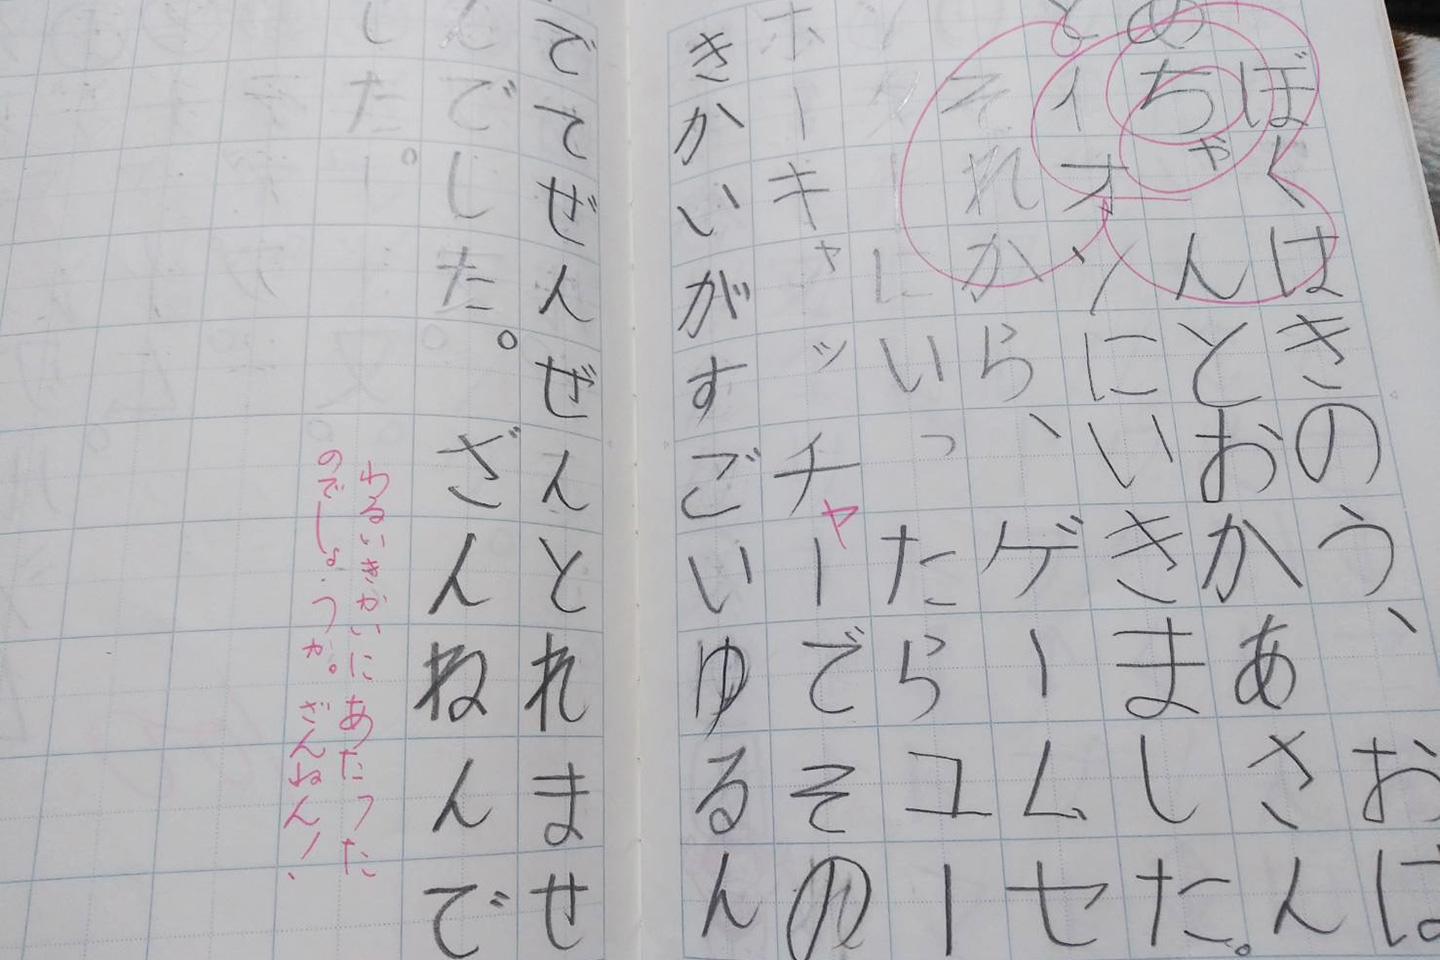 ぼくはきのう、おは
めちゃんとおかあさん
とイオンにいきました。
それから、ゲームセ
ンターにいったらユー
ホーキャッチャーでその
きかいがすごいゆるん
でてぜんぜんとれませ
んでした。ざんねんで
した。
わるいきかいにあたった
のでしょうか。ざんねん！